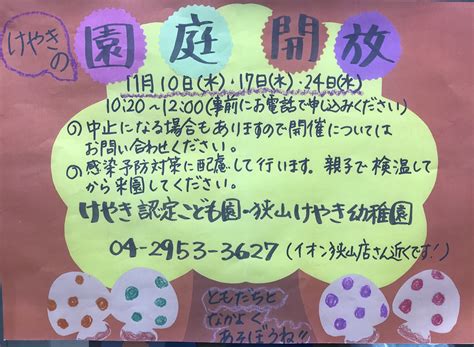 けやきの
園庭開放
11月10日(水)・17日(水)・24日(水)
10:20~12:00(事前にお電話で申し込みください)
の中止になる場合もありますので開催については
お問い合わせください。
の感染予防対策に配慮して行います。親子で検温して
から来園してください。
けやき認定こども園・狭山けやき幼稚園
04-2953-3627(イオン狭山店さん近くです!)
ともだちと
なかよく
あそぼうね!!